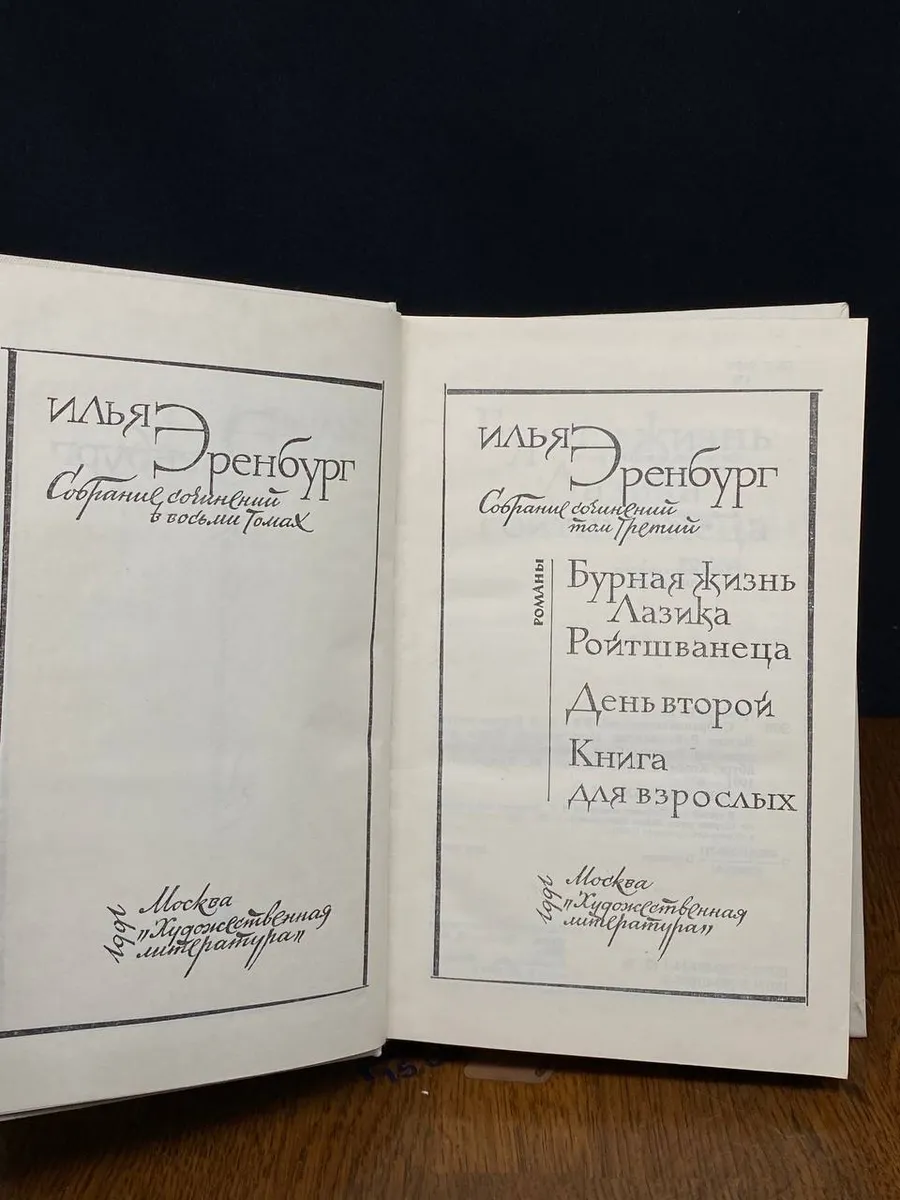 Илья
Эренбург
Собрание сочинений
в восьми томах
1991
Москва
„Художественная
литература"
Илья
Эренбург
Собрание сочинений
том третий
РОМАНЫ
Бурная жизнь
Лазика
Ройтшванеца
День второй
Книга
для взрослых
1991
Москва
„Художественная
литература"